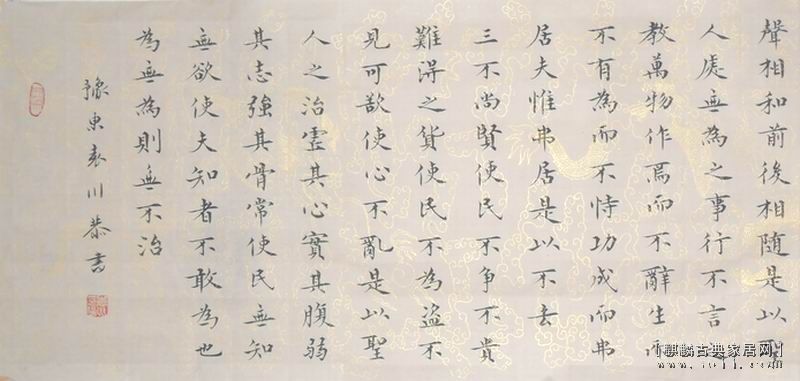 聲相和前後相隨是以
人處無為之事行不言
教萬物作焉而不辭生而
不有為而不恃功成而弗
居夫惟弗居是以不去
三不尚賢使民不争不貴
難得之貨使民不為盜不
見可欲使心不亂是以聖
人之治虛其心實其腹弱
其志強其骨常使民無知
無欲使夫知者不敢為也
為無為則無不治
豫東袁川恭書
麒麟古典家居网